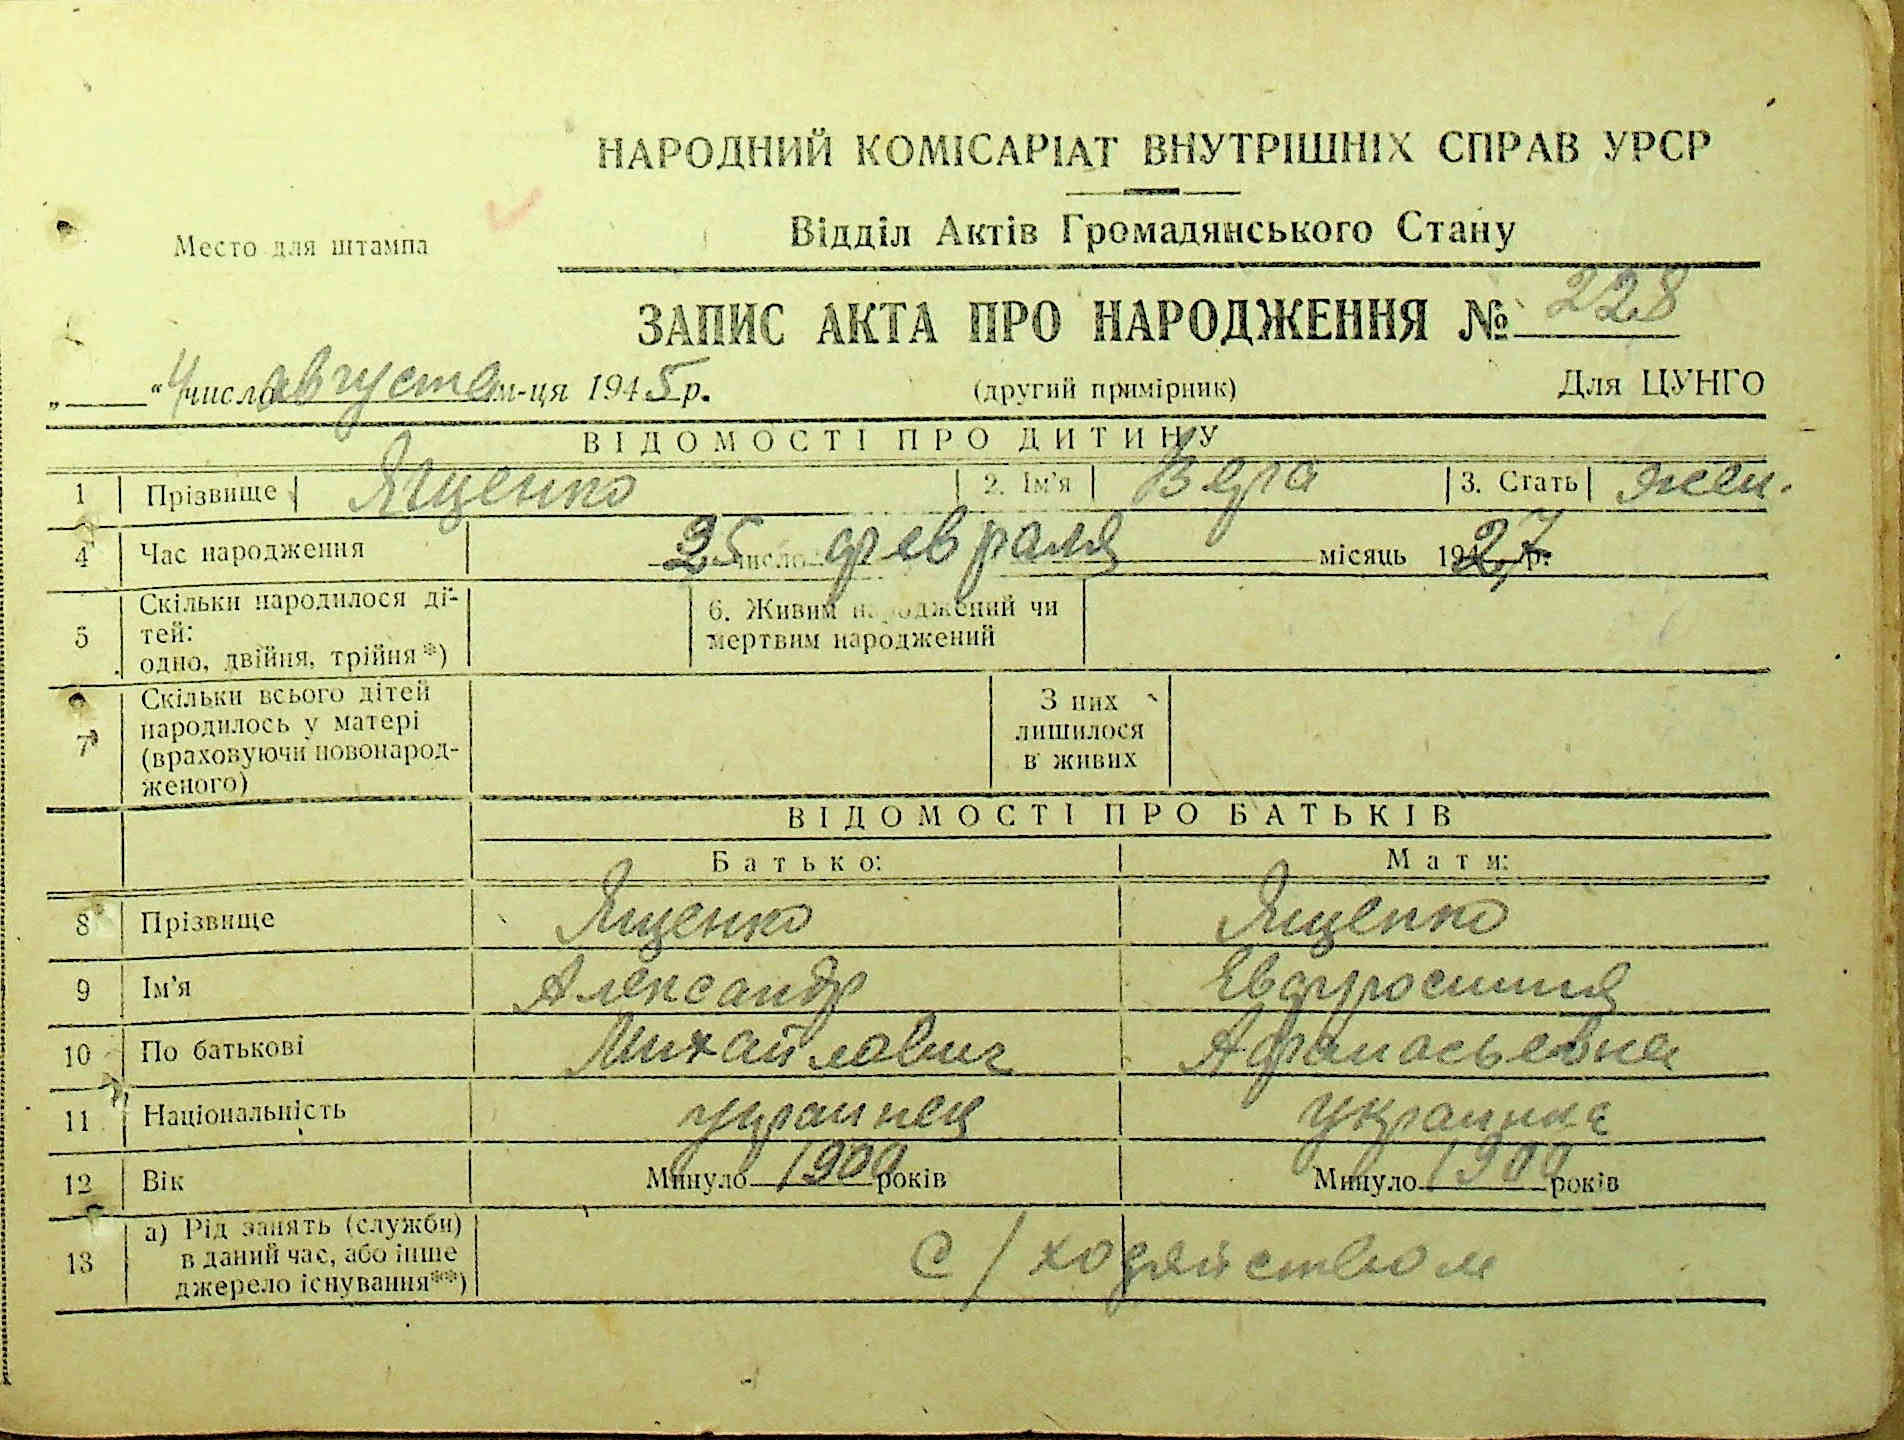 НАРОДНИЙ КОМІСАРІАТ ВНУТРІШНІХ СПРАВ УРСР
Место для штампа
Відділ Актів Громадянського Стану
ЗАПИС АКТА ПРО НАРОДЖЕННЯ № 228
„ “ 4 число августа м-ця 1945 р. (другий примірник) Для ЦУНГО
ВІДОМОСТІ ПРО ДИТИНУ
1 Прізвище Ященко 2. Ім'я Вера 3. Стать жен.
4 Час народження 25 число февраля місяць 1927 р.
5 Скільки народилося ді-
тей:
одно, двійня, трійня*)
6. Живим народжений чи
мертвим народжений
7 Скільки всього дітей
народилось у матері
(враховуючи новонарод-
женого)
З них
лишилося
в живих
ВІДОМОСТІ ПРО БАТЬКІВ
Батько: Мати:
8 Прізвище Ященко Ященко
9 Ім'я Александр Евфросиния
10 По батькові Михайлович Афанасьевна
11 Національність украинец украинка
12 Вік Минуло 1900 років Минуло 1900 років
13 а) Рід занять (служби)
в даний час, або інше
джерело існування**)
С/хозяйством